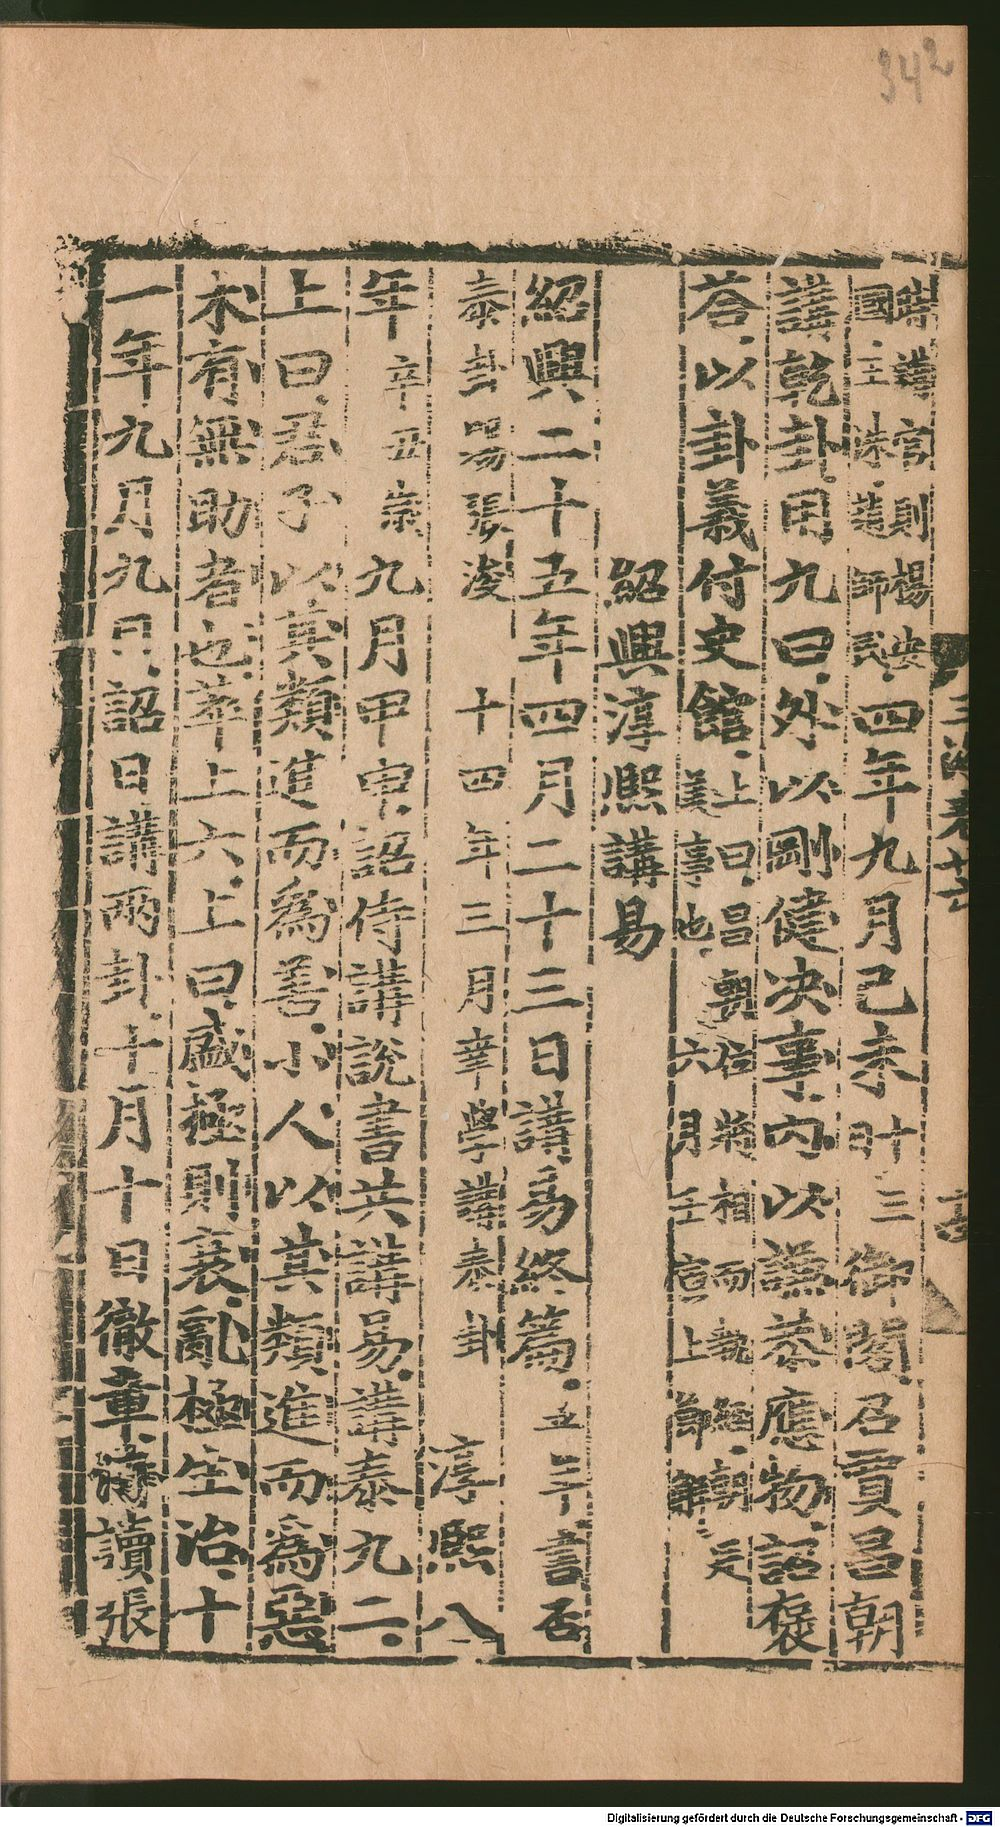 342
時講官則楊安
國王洙蓋師民四年九月己未三十御閣召賈昌朝
講乾卦用九曰外以剛健决事内以謙恭應物詔褒
荅以卦義付史館上曰昌朝位將相而執經朝廷
美事也六月壬寅上節解
紹興淳熙講易
紹興二十五年四月二十三日講易終篇五年書否
泰卦賜張浚十四年三月幸學講泰卦淳熙八
年辛丑歲九月甲申詔侍講說書共講易講泰九二
上曰君子以其類進而為善小人以其類進而為惡
未有無助者也萃上六上曰盛極則衰亂極生治十
一年九月九日詔日講兩卦十月十日徹章讀張
Digitalisierung gefördert durch die Deutsche Forschungsgemeinschaft - DFG